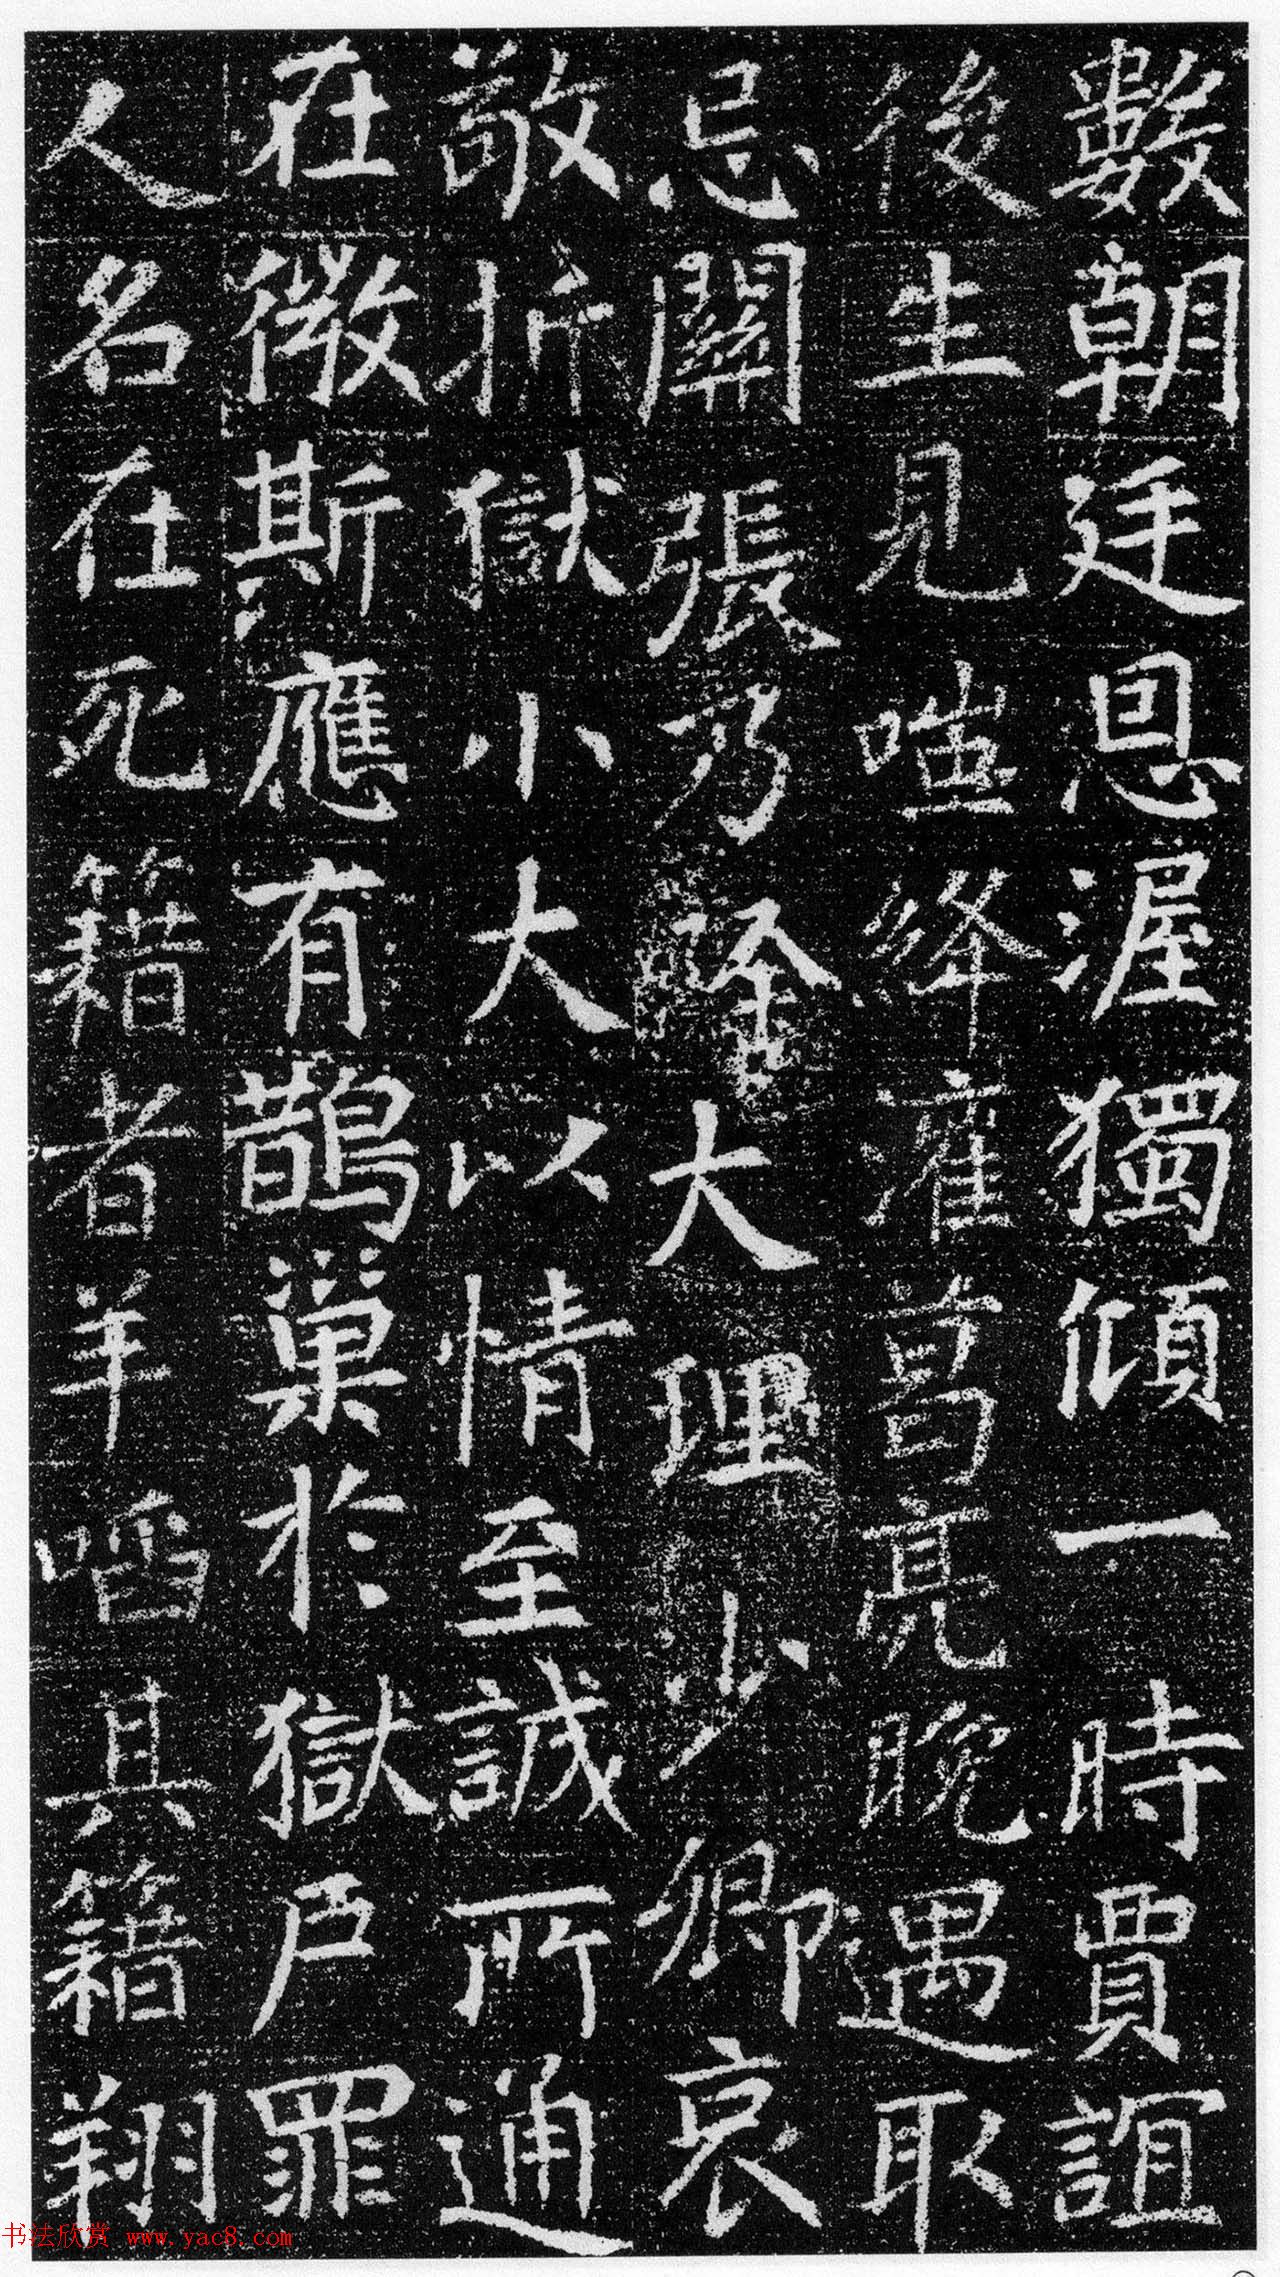 數朝廷恩渥獨傾一時賈誼
後生見嗤絳灌葛亮晚遇取
忌關張乃除大理少卿哀
敬折獄小大以情至誠所通
在微斯應有鵲巢於獄戶罪
人名在死籍者羊啗其籍翔
书法欣赏 www.yac8.com